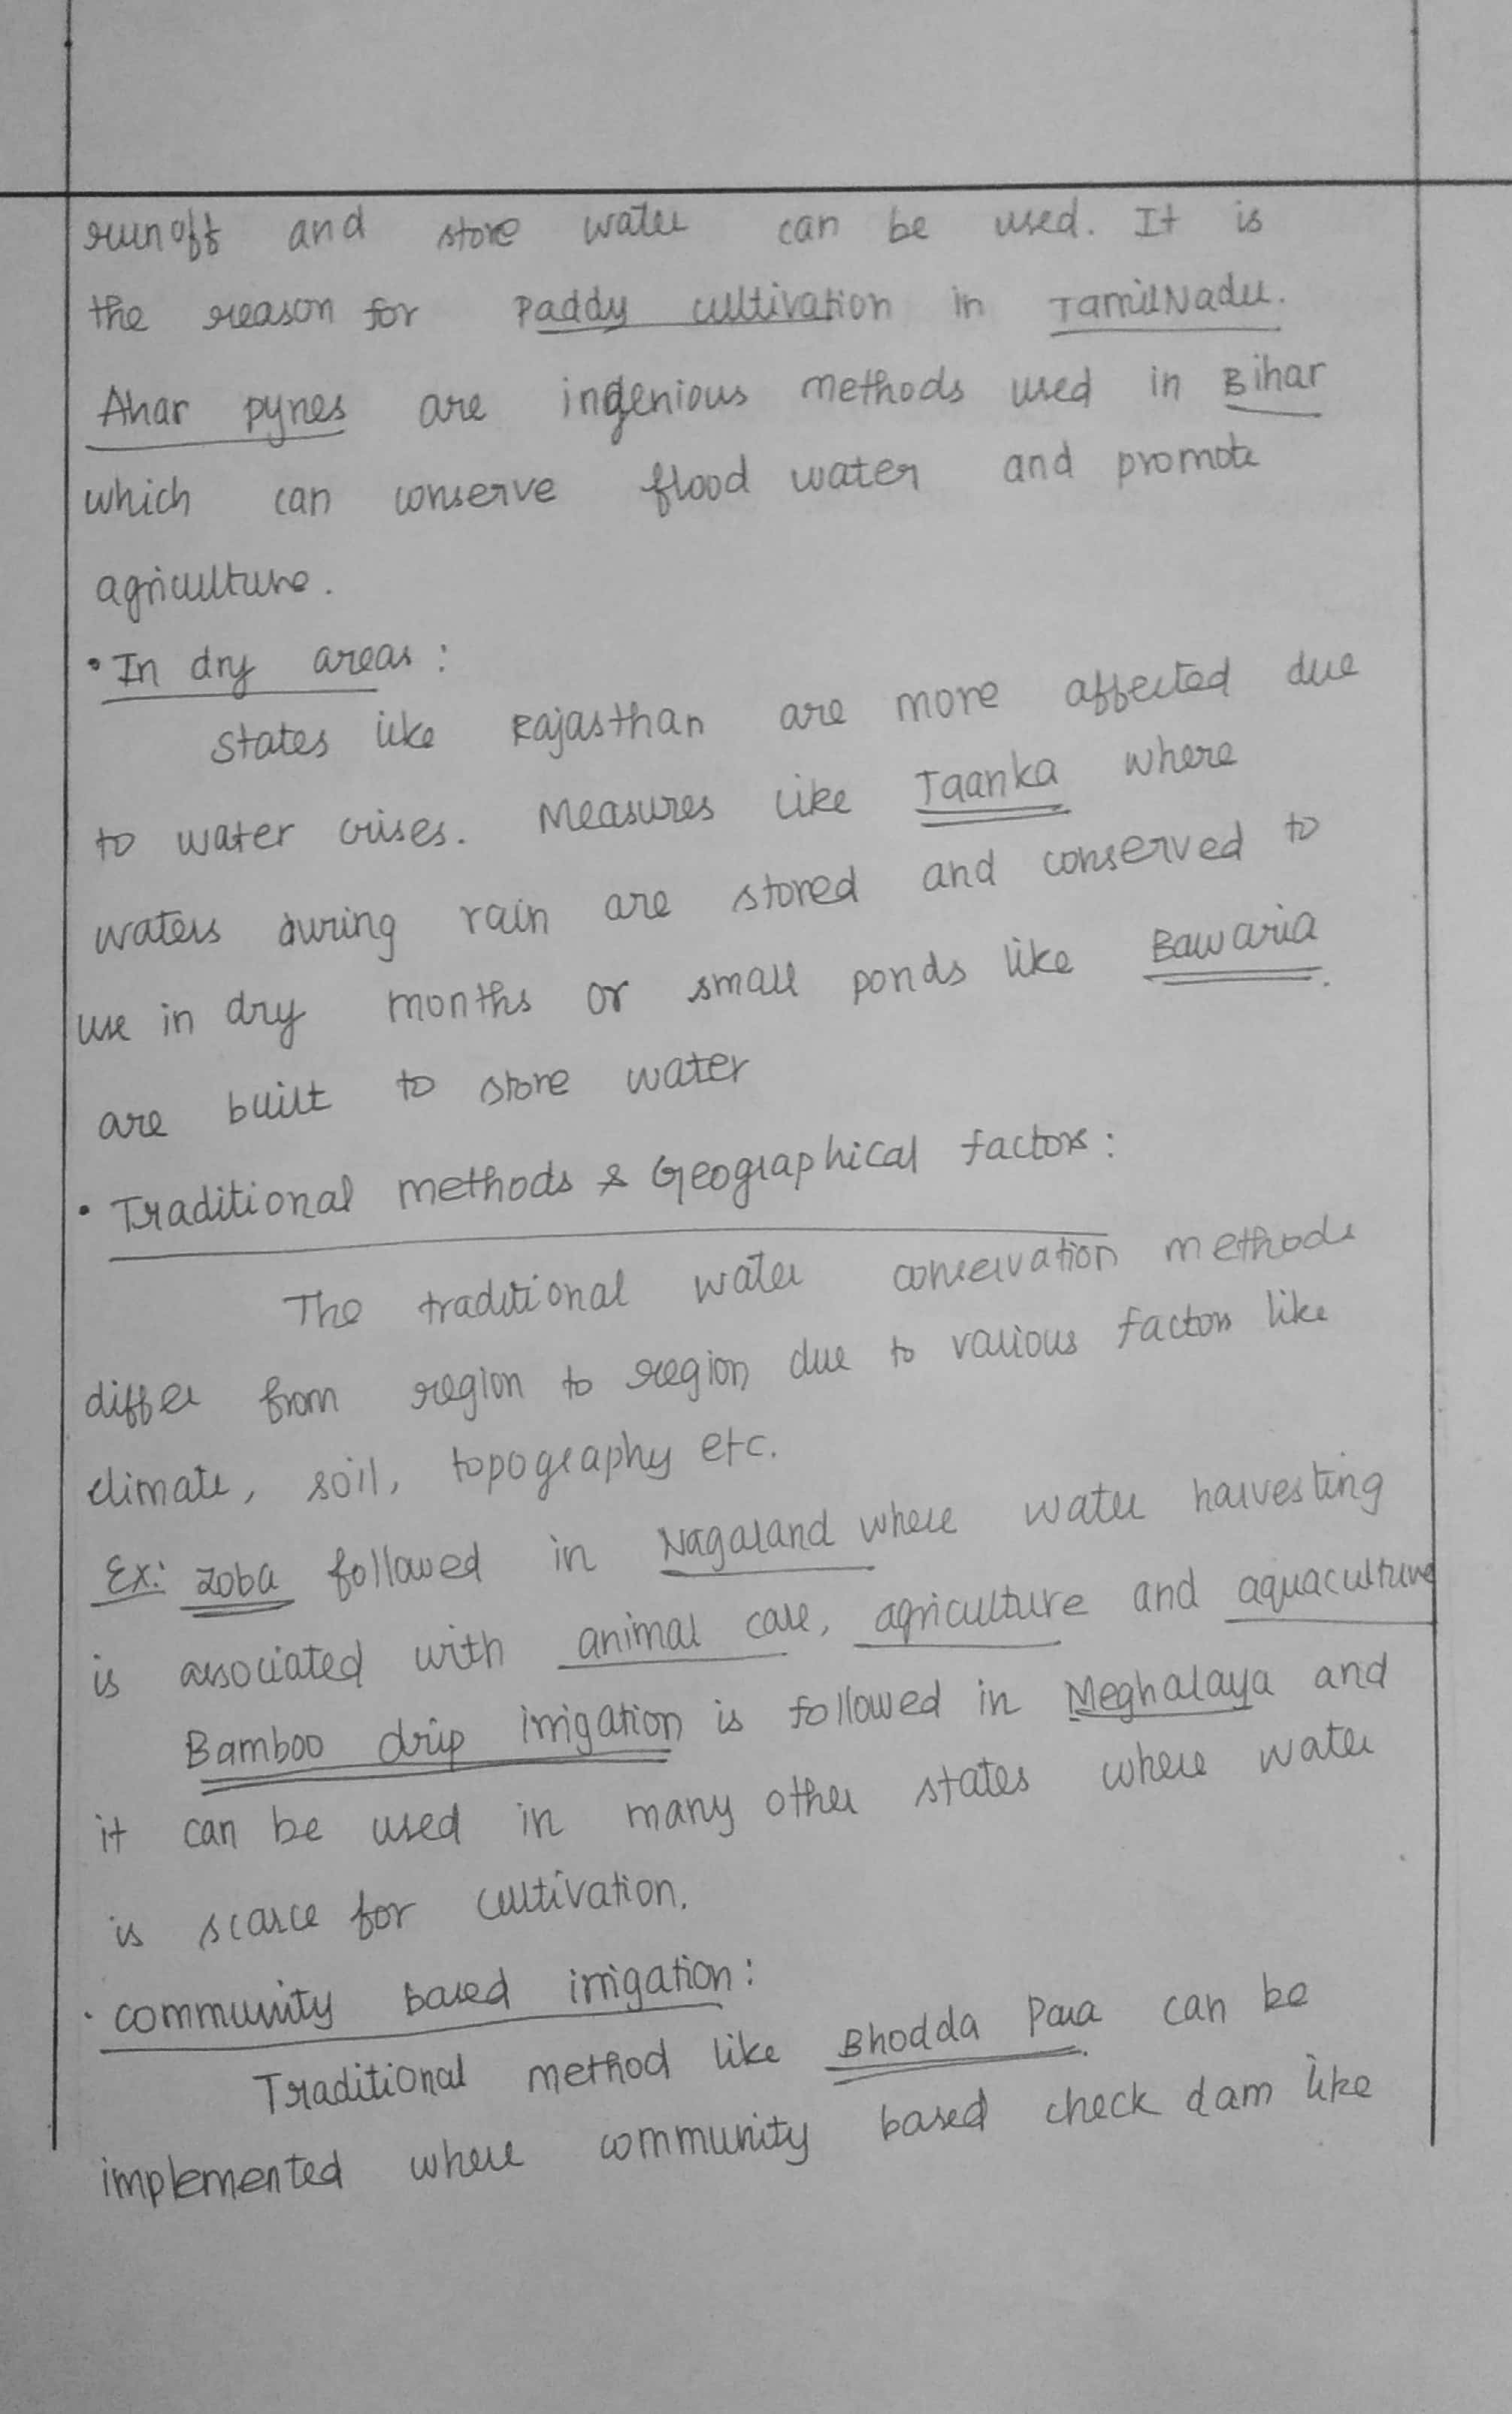 runoff and store water can be used. It is
the reason for Paddy cultivation in TamilNadu.
Ahar pynes are ingenious methods used in Bihar
which can conserve flood water and promote
agriculture.
• In dry areas :
States like Rajasthan are more affected due
to water crises. Measures like Taanka where
waters during rain are stored and conserved to
use in dry months or small ponds like Bawaria.
are built to store water
• Traditional methods & Geographical factors :
The traditional water conservation methods
differ from region to region due to various factors like
climate, soil, topography etc.
Ex: Zoba followed in Nagaland where water harvesting
is associated with animal care, agriculture and aquaculture
Bamboo drip irrigation is followed in Meghalaya and
it can be used in many other states where water
is scarce for cultivation.
• community based irrigation :
Traditional method like Bhodda Para can be
implemented where community based check dam like